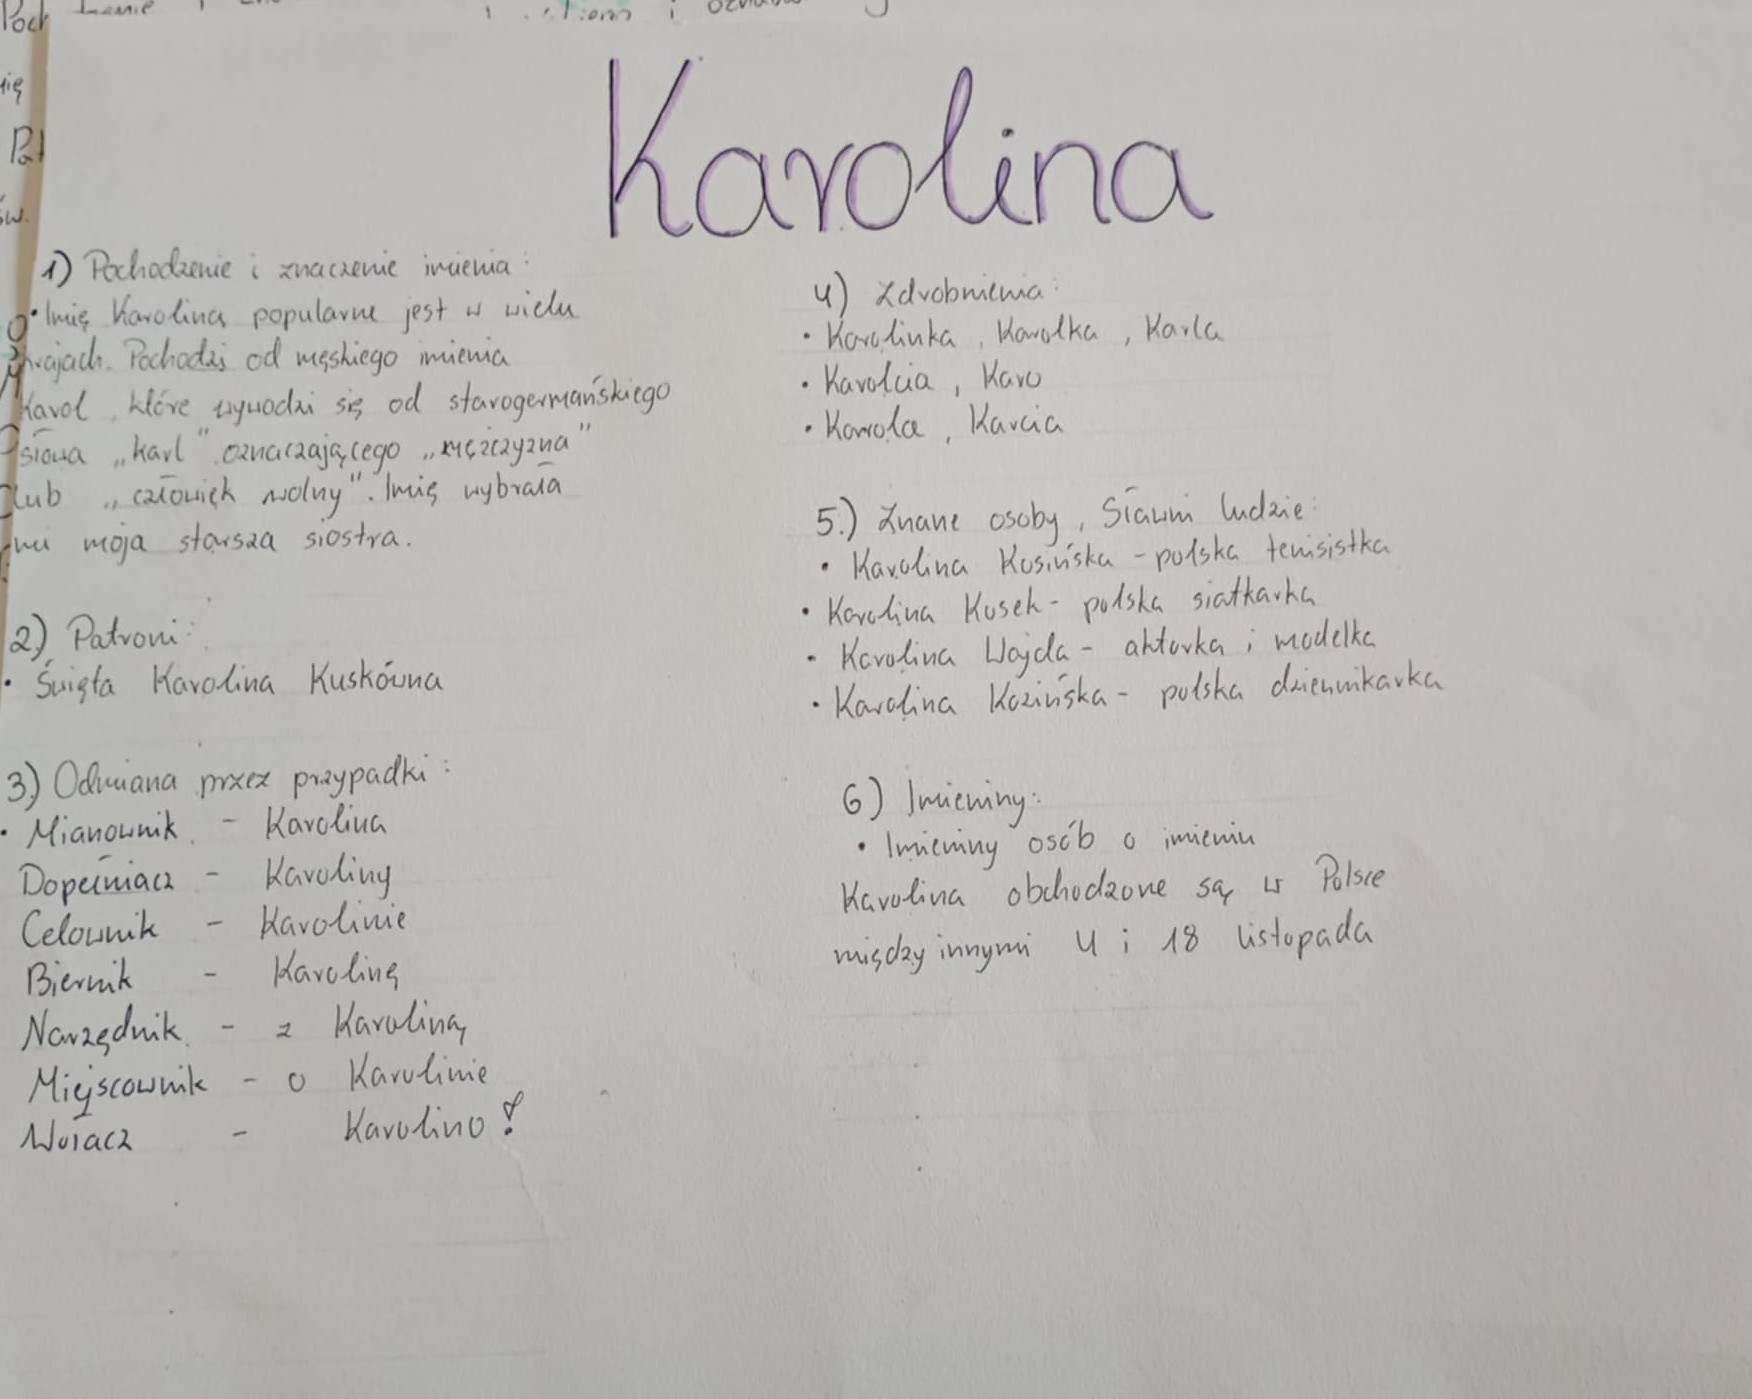 Karolina
1) Pochodzenie i znaczenie imienia:
• Imię Karolina popularne jest w wielu
krajach. Pochodzi od męskiego imienia
Karol, które wywodzi się od starogermańskiego
słowa „karl" oznaczającego „mężczyzna"
lub „człowiek wolny". Imię wybrała
mi moja starsza siostra.
2.) Patroni:
• Święta Karolina Kuskówna
3.) Odmiana przez przypadki:
• Mianownik - Karolina
Dopełniacz - Karoliny
Celownik - Karolinie
Biernik - Karolinę
Narzędnik - z Karoliną
Miejscownik - o Karolinie
Wołacz - Karolino!
4) Zdrobnienia:
• Karolinka, Karolka, Karla
• Karolcia, Karo
• Karola, Karcia
5.) Znane osoby, Sławni ludzie:
• Karolina Kosińska - polska tenisistka
• Karolina Kosek - polska siatkarka
• Karolina Wajda - aktorka i modelka
• Karolina Kozińska - polska dziennikarka
6) Imieniny:
• Imieniny osób o imieniu
Karolina obchodzone są w Polsce
między innymi 4 i 18 listopada